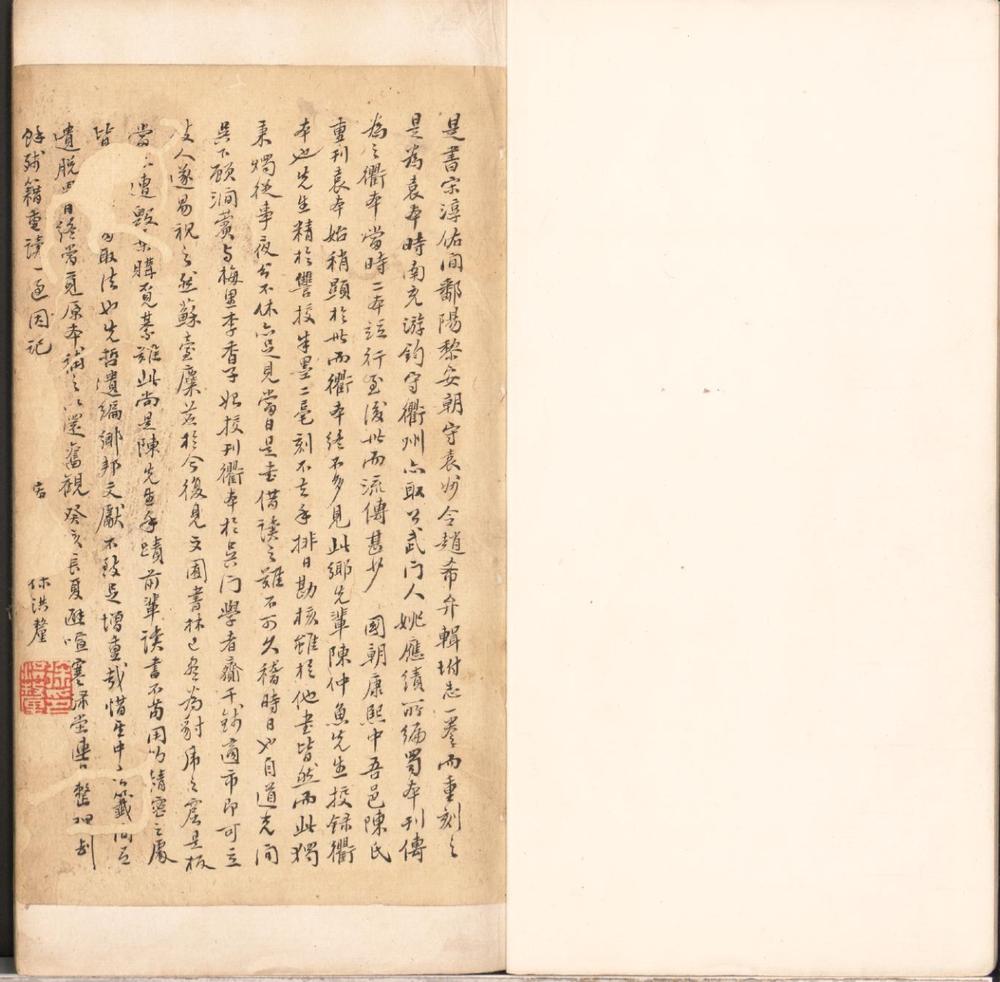 是書宋淳佑間鄱陽黎安朝守袁州令趙希弁輯坿志一卷而重刻之
是為袁本時南充游鈞守衢州亦取公武門人姚應績所編蜀本刊傳
為之衢本當時二本竝行至後世而流傳甚少 國朝康熙中吾邑陳氏
重刊袁本始稍顯於世而衢本終不多見此鄉先輩陳仲魚先生挍錄衢
本也先生精於讐挍朱墨二毫刻不去手排日勘核雖於他書皆然而此獨
秉燭從事夜分不休亦足見當日是書借讀之難不可久稽時日也自道光間
吳下顧澗薲与梅里李香子始挍刊衢本於吳門學者齎千錢適市即可立
致人遂易視之然蘇臺麋鹿於今復見文囿書林已盡為豺虎之窟是板
當亦遭毀求購覓綦難此尚是陳先生手蹟前輩讀書不苟用心精密之處
皆 取法也先哲遺編鄉邦文獻不啻足增重哉惜笙中 籤間有
遺脫異日終當覓原本補之以還舊觀癸亥長夏避喧寒 堂 整理刦
餘殘籍重讀一過因記
唐仁壽